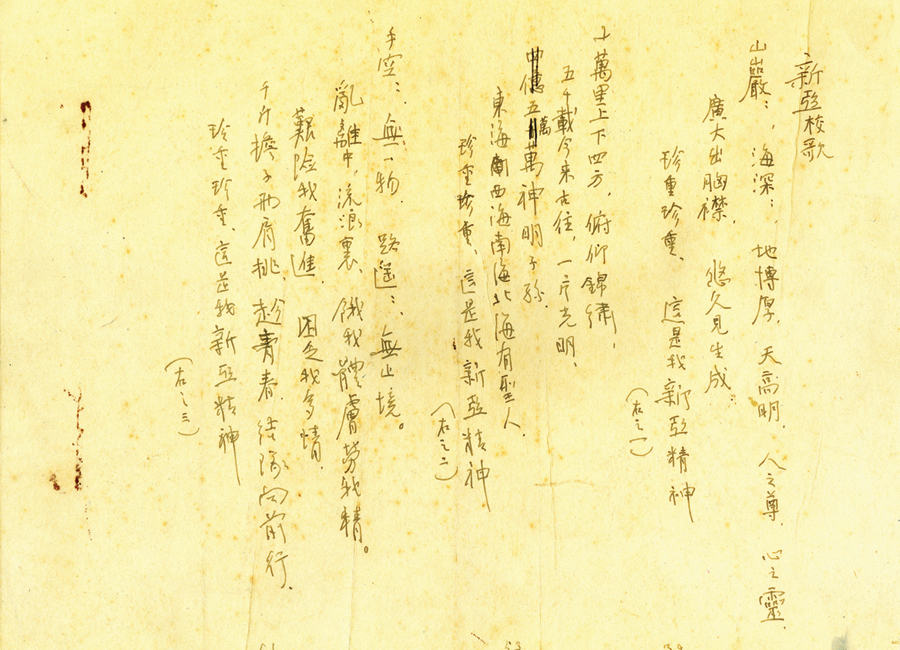 新亞校歌
山巖:,海深:,地博厚,天高明,人之尊,心之靈,
廣大出胸襟,悠久見生成.
珍重珍重,這是我新亞精神
(右之一)
十萬里上下四方,俯仰錦繡,
五千載今來古往,一片光明,
五萬萬神明子孫.
東海西海南海北海有聖人.
珍重珍重,這是我新亞精神
(右之二)
手空:,無一物.路遥:,無止境。
亂離中,流浪裏,餓我體膚勞我精。
艱險我奮進,困乏我多情.
千斤擔子兩肩挑,趁青春,結隊向前行.
珍重珍重,這是我新亞精神
(右之三)